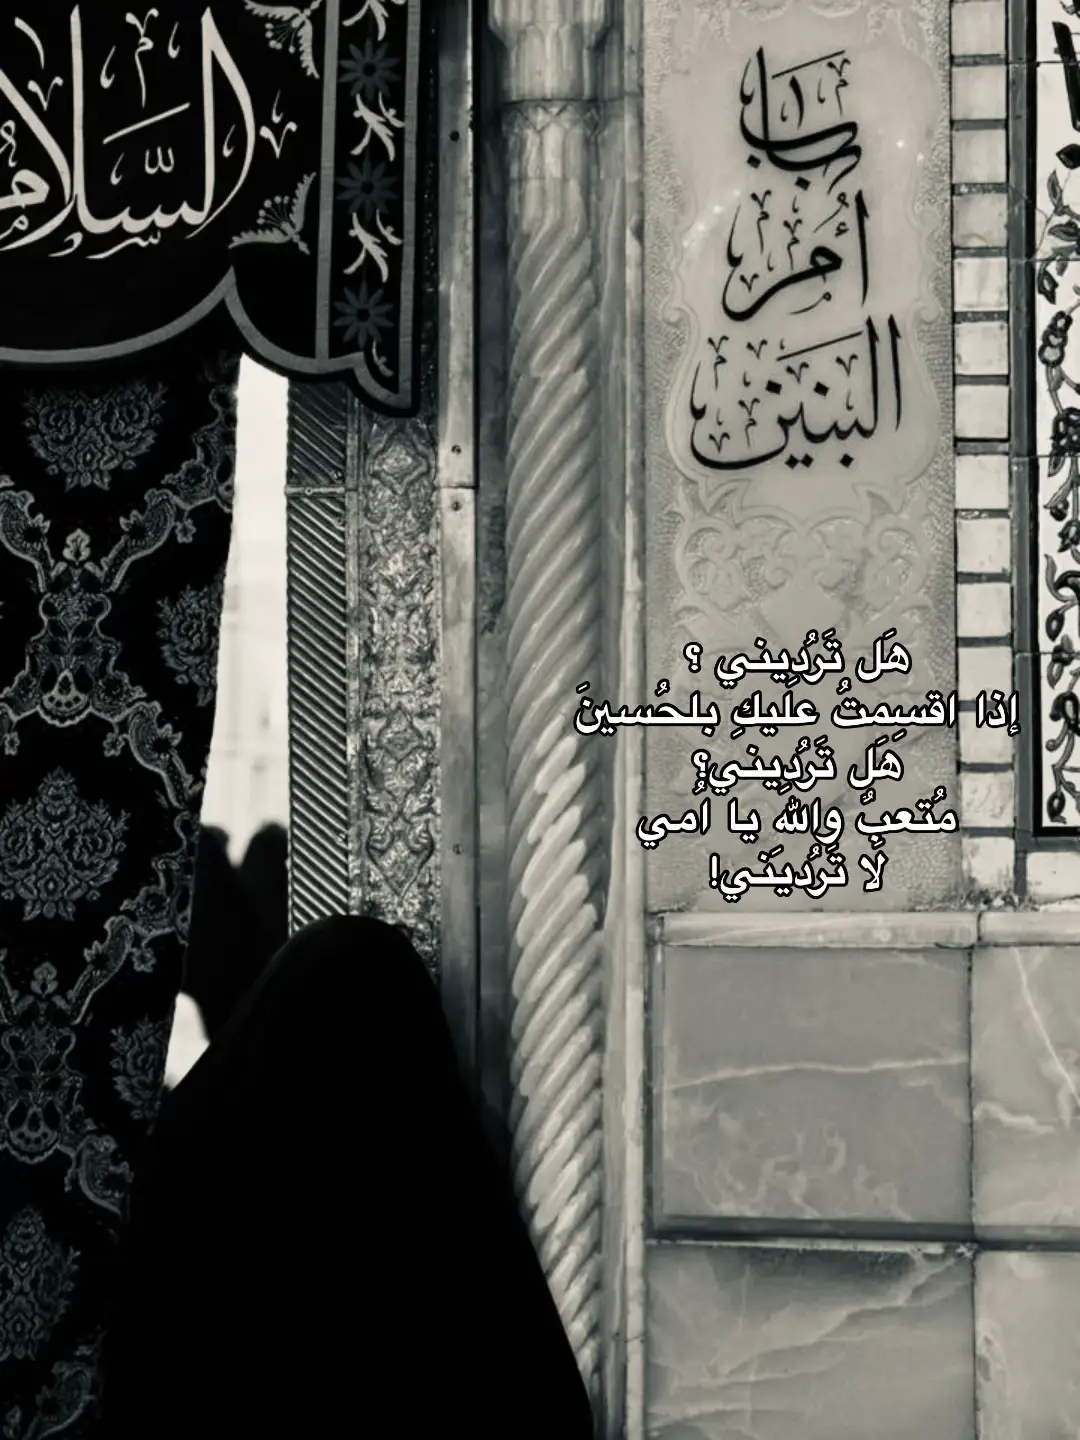 السلام
باب
أم
البنين
هَل تَرُدِيني ؟
إذا اقسمتُ عليكِ بلحُسينَ
هَل تَرُدِيني؟
مُتعبٌ والله يا اُمي
لا تَرُديَني!